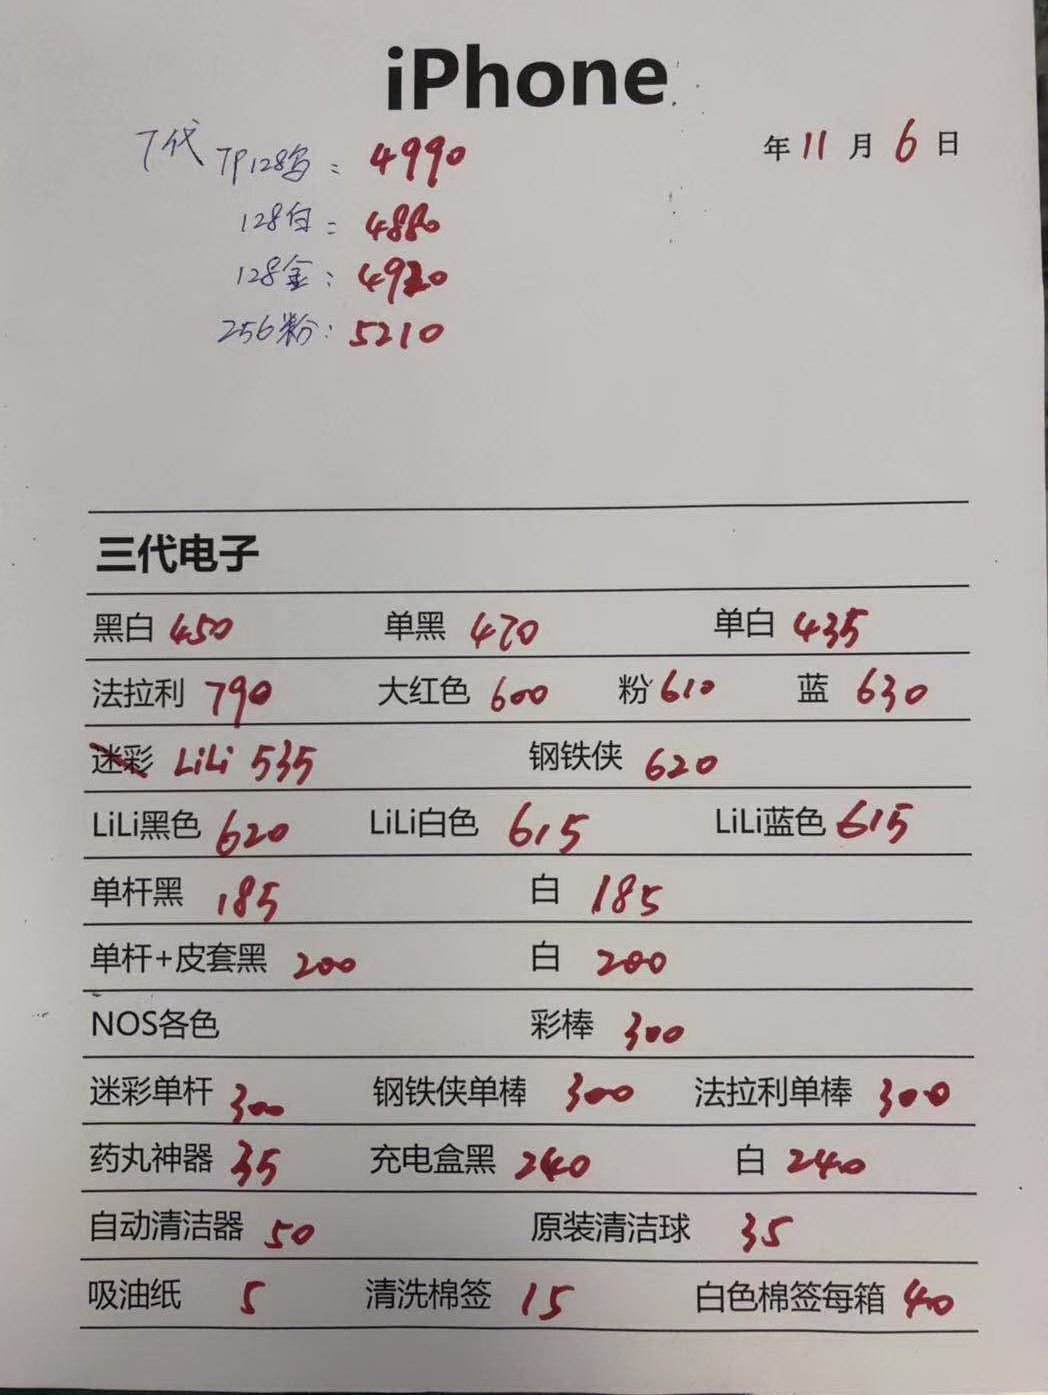 iPhone
年 11 月 6 日
7代 7P128乌: 4990
128白: 4880
128金: 4920
256粉: 5210
三代电子
黑白 450 单黑 470 单白 435
法拉利 790 大红色 600 粉 610 蓝 630
迷彩 LiLi 535 钢铁侠 620
LiLi黑色 620 LiLi白色 615 LiLi蓝色 615
单杆黑 185 白 185
单杆+皮套黑 200 白 200
NOS各色 彩棒 300
迷彩单杆 300 钢铁侠单棒 300 法拉利单棒 300
药丸神器 35 充电盒黑 240 白 240
自动清洁器 50 原装清洁球 35
吸油纸 5 清洗棉签 15 白色棉签每箱 40